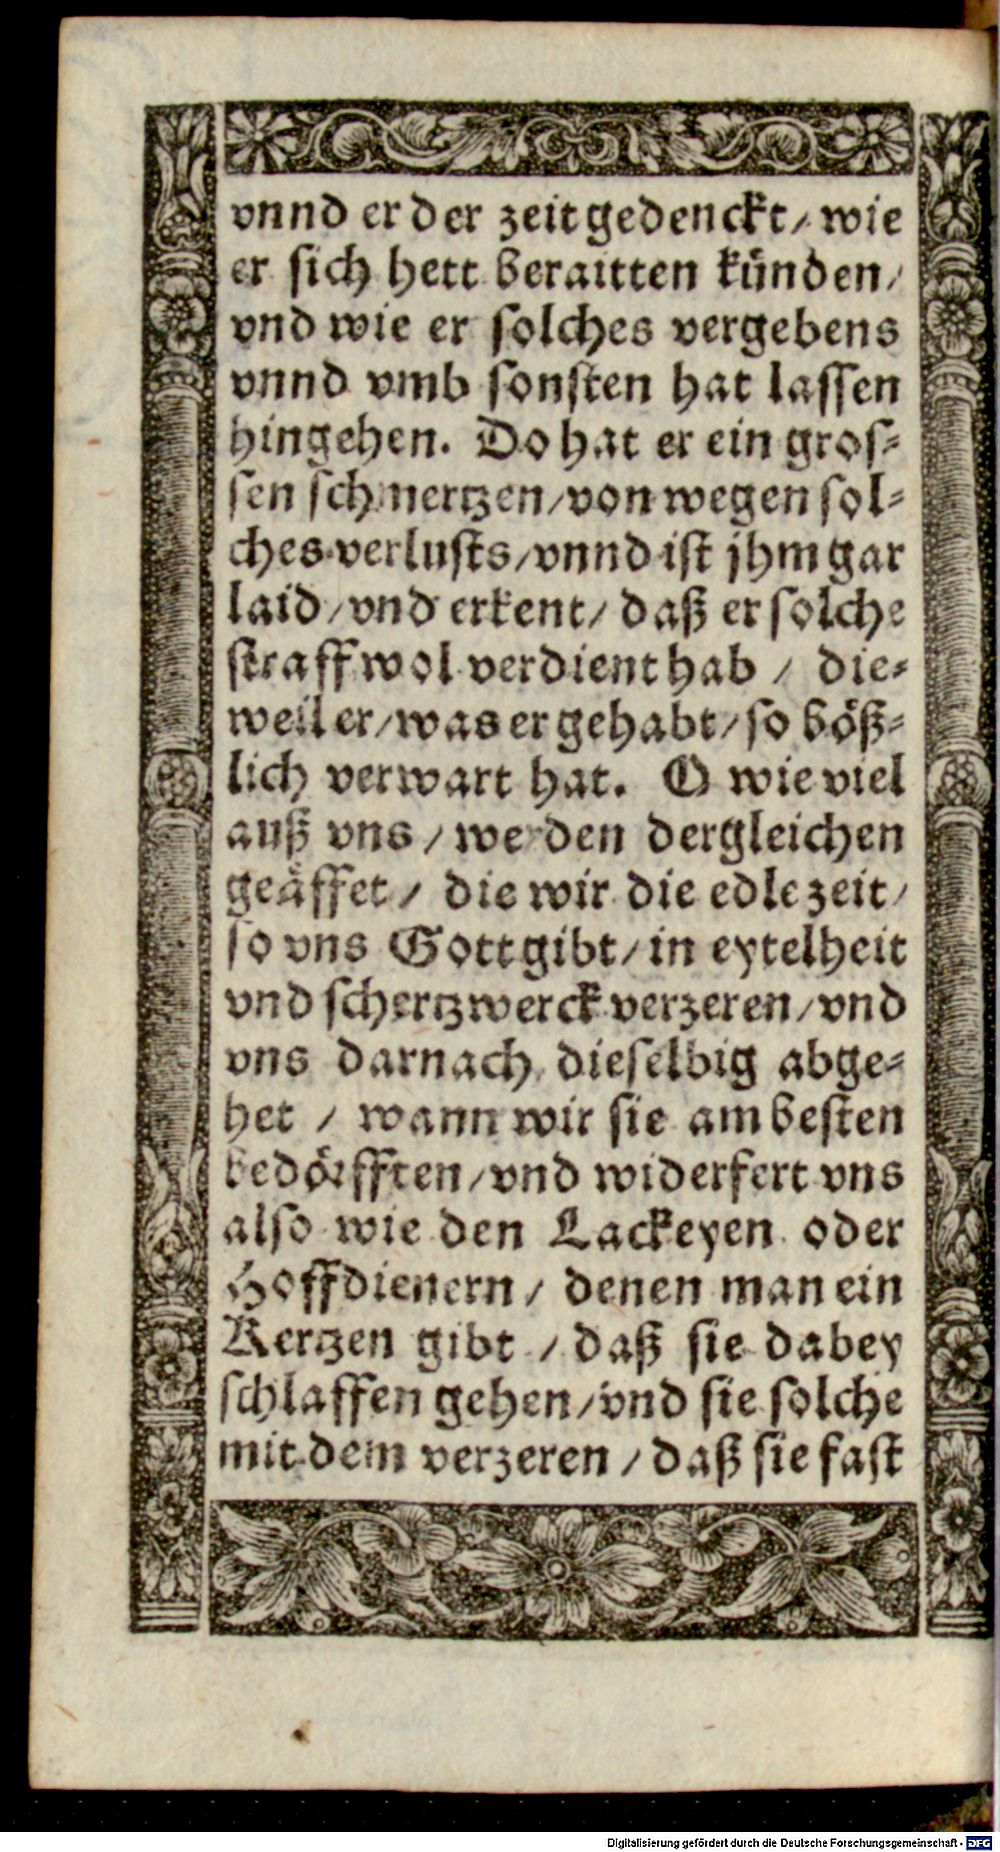 vnnd er der zeit gedenckt / wie
er sich hett beraitten künden /
vnd wie er solches vergebens
vnnd vmb sonsten hat lassen
hingehen. Do hat er ein gros⸗
sen schmertzen / von wegen sol⸗
ches verlusts / vnnd ist jhm gar
laid / vnd erkent / daß er solche
straff wol verdient hab / die⸗
weil er / was er gehabt / so böß⸗
lich verwart hat. O wie viel
auß vns / werden dergleichen
geäffet / die wir die edle zeit /
so vns Gott gibt / in eytelheit
vnd schertzwerck verzeren / vnd
vns darnach dieselbig abge⸗
het / wann wir sie am besten
bedörfften / vnd widerfert vns
also wie den Lackeyen oder
Hoffdienern / denen man ein
Kertzen gibt / daß sie dabey
schlaffen gehen / vnd sie solche
mit dem verzeren / daß sie fast
Digitalisierung gefördert durch die Deutsche Forschungsgemeinschaft - DFG